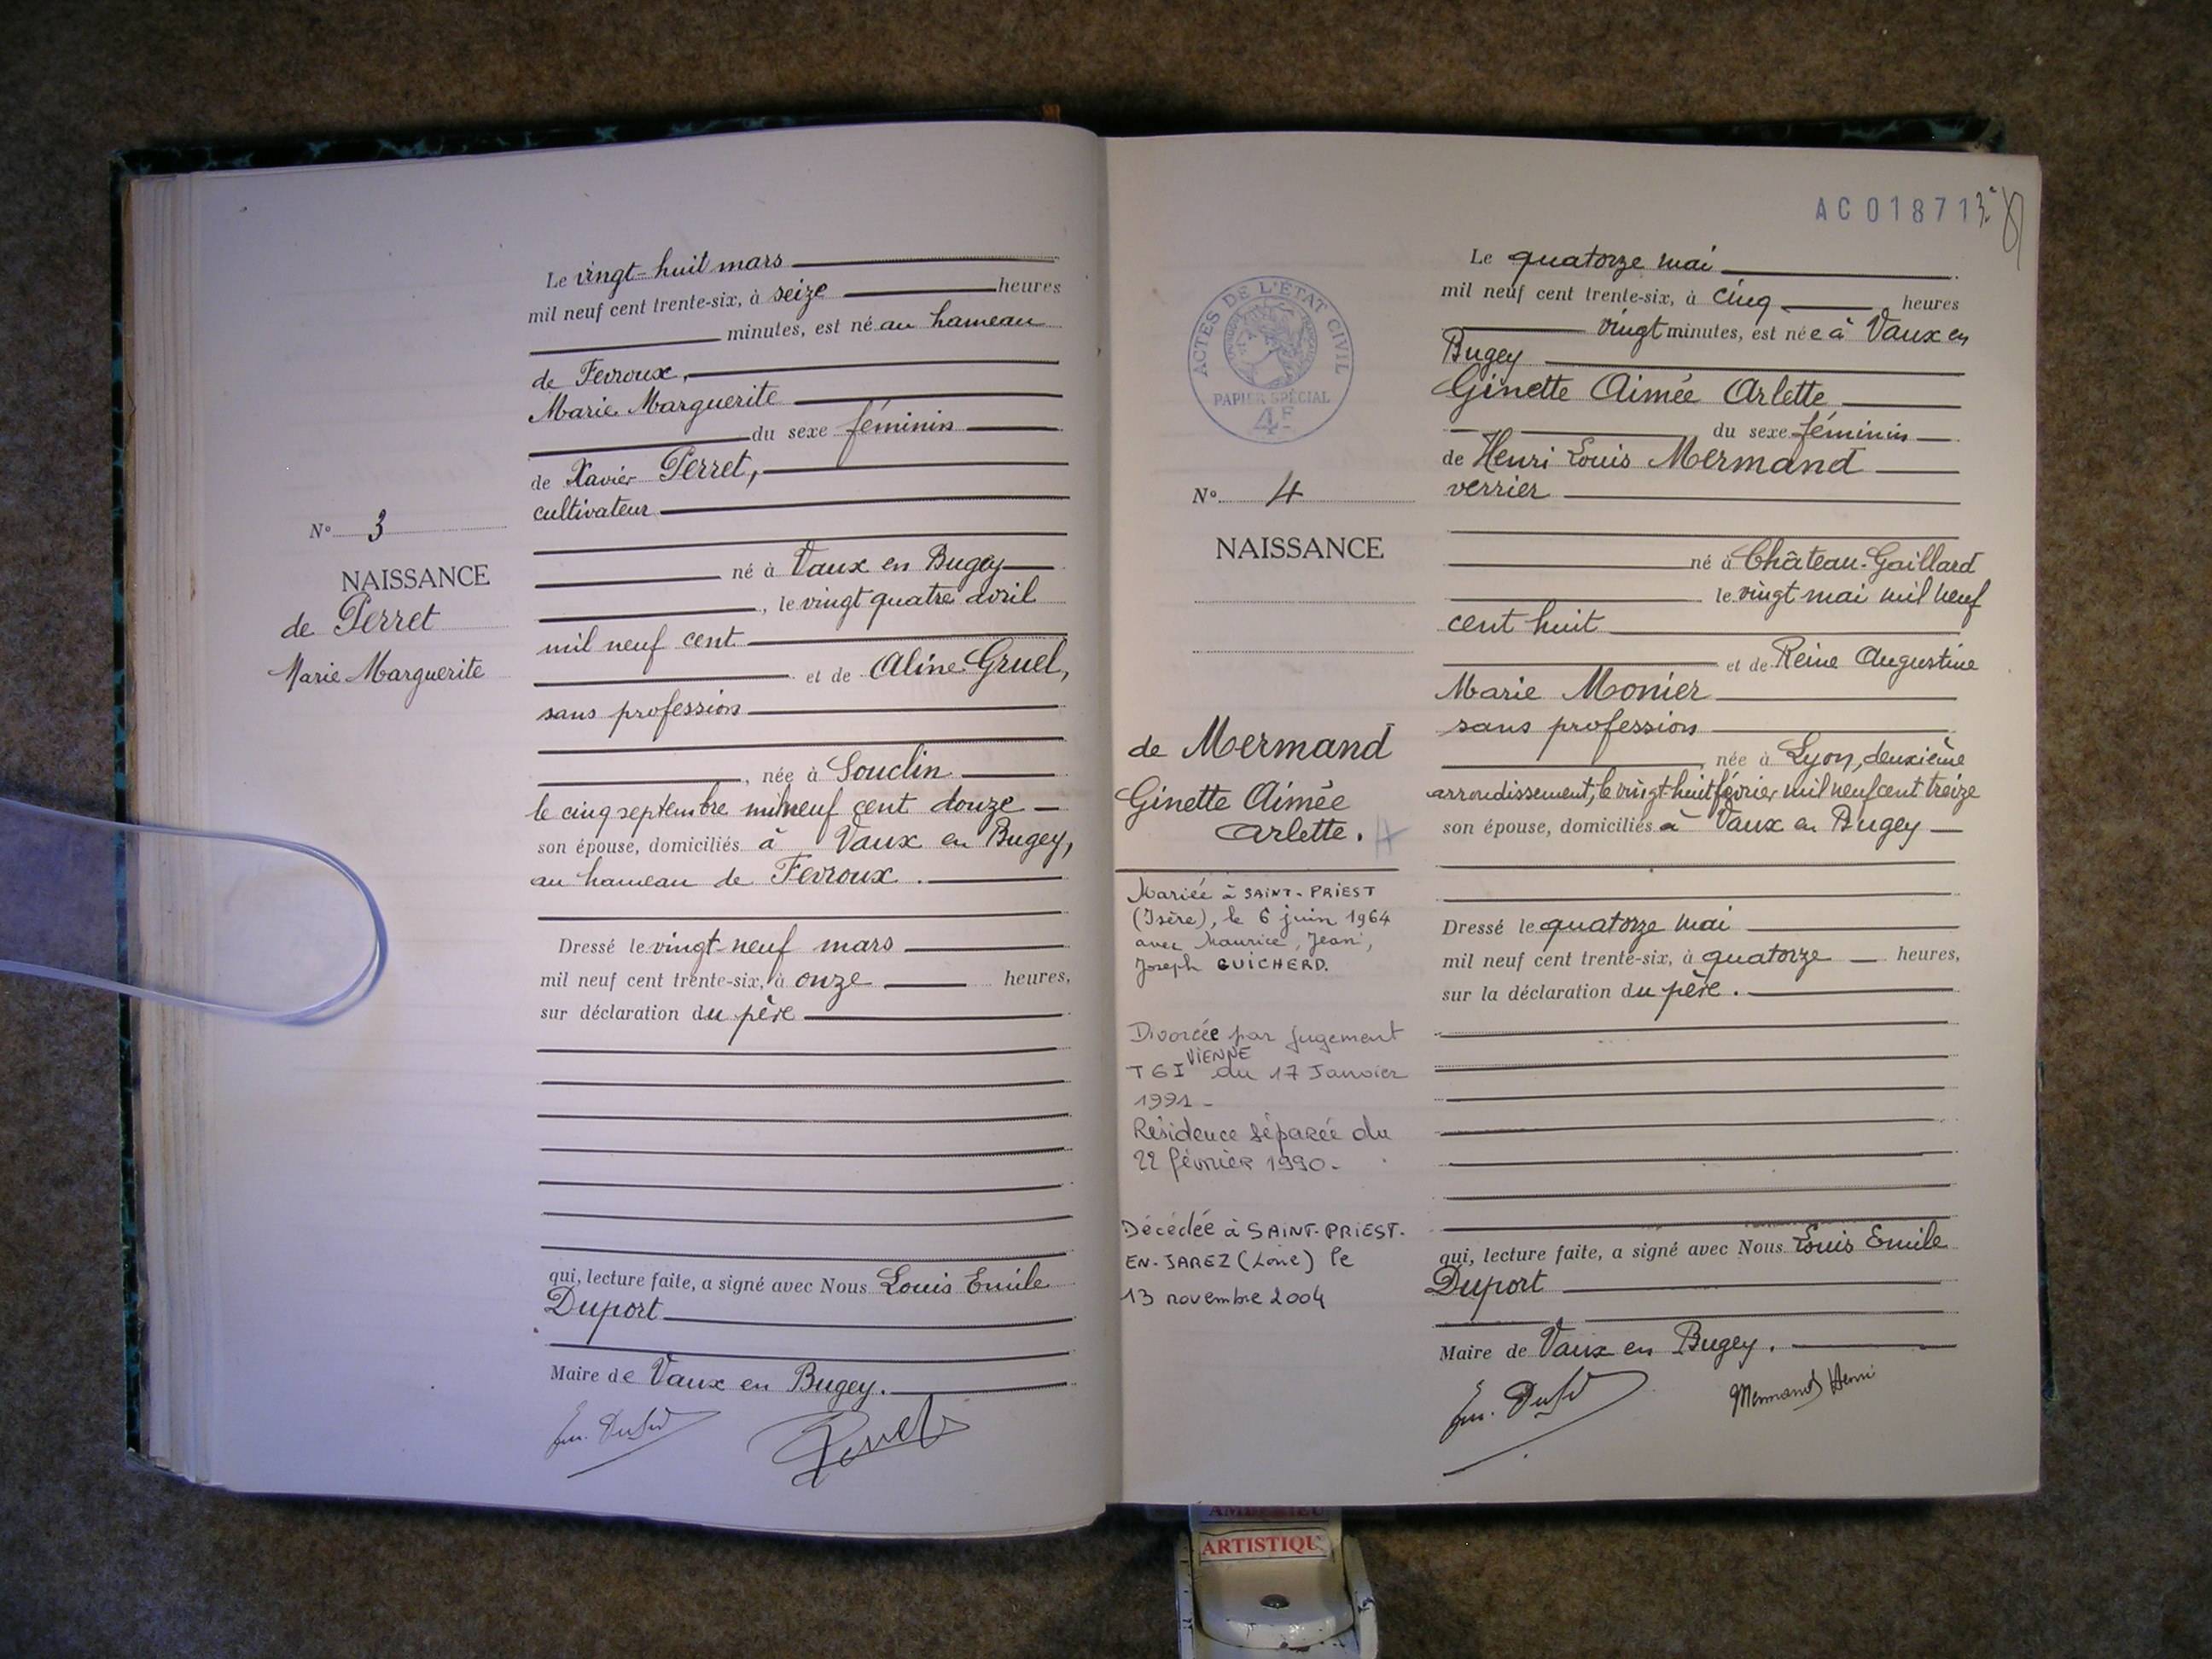 Le vingt-huit mars
mil neuf cent trente-six, à seize heures
minutes, est né au hameau
de Fevroux,
Marie Marguerite
du sexe féminin
de Xavier Perret,
cultivateur
né à Vaux en Bugey
, le vingt quatre avril
mil neuf cent
et de Aline Gruel,
sans profession
, née à Souclin
le cinq septembre mil neuf cent douze
son épouse, domiciliés à Vaux en Bugey,
au hameau de Fevroux.
Dressé le vingt-neuf mars
mil neuf cent trente-six, à onze heures,
sur déclaration du père
qui, lecture faite, a signé avec Nous Louis Emile
Duport
Maire de Vaux en Bugey.
Em. Duport
Perret
N° 3
NAISSANCE
de Perret
Marie Marguerite
AC 01871
ACTES DE L'ÉTAT CIVIL
PAPIER SPÉCIAL
4F
N° 4
NAISSANCE
de Mermand
Ginette Aimée
Arlette.
Mariée à SAINT-PRIEST
(Isère), le 6 juin 1964
avec Maurice, Jean,
Joseph GUICHERD.
Divorcée par jugement
TGI VIENNE du 17 Janvier
1991 -
Résidence séparée du
22 février 1990 -
Décédée à SAINT-PRIEST-
EN-JAREZ (Loire) le
13 novembre 2004
Le quatorze mai
mil neuf cent trente-six, à cinq heures
vingt minutes, est née à Vaux en
Bugey
Ginette Aimée Arlette
du sexe féminin
de Henri Louis Mermand
verrier
né à Château-Gaillard
le vingt mai mil neuf
cent huit
et de Reine Augustine
Marie Monier
sans profession
, née à Lyon, deuxième
arrondissement, le vingt huit février mil neuf cent treize
son épouse, domiciliés à Vaux en Bugey
Dressé le quatorze mai
mil neuf cent trente-six, à quatorze heures,
sur la déclaration du père.
qui, lecture faite, a signé avec Nous Louis Emile
Duport
Maire de Vaux en Bugey.
Em. Duport
Mermand Henri
ARTISTIQU